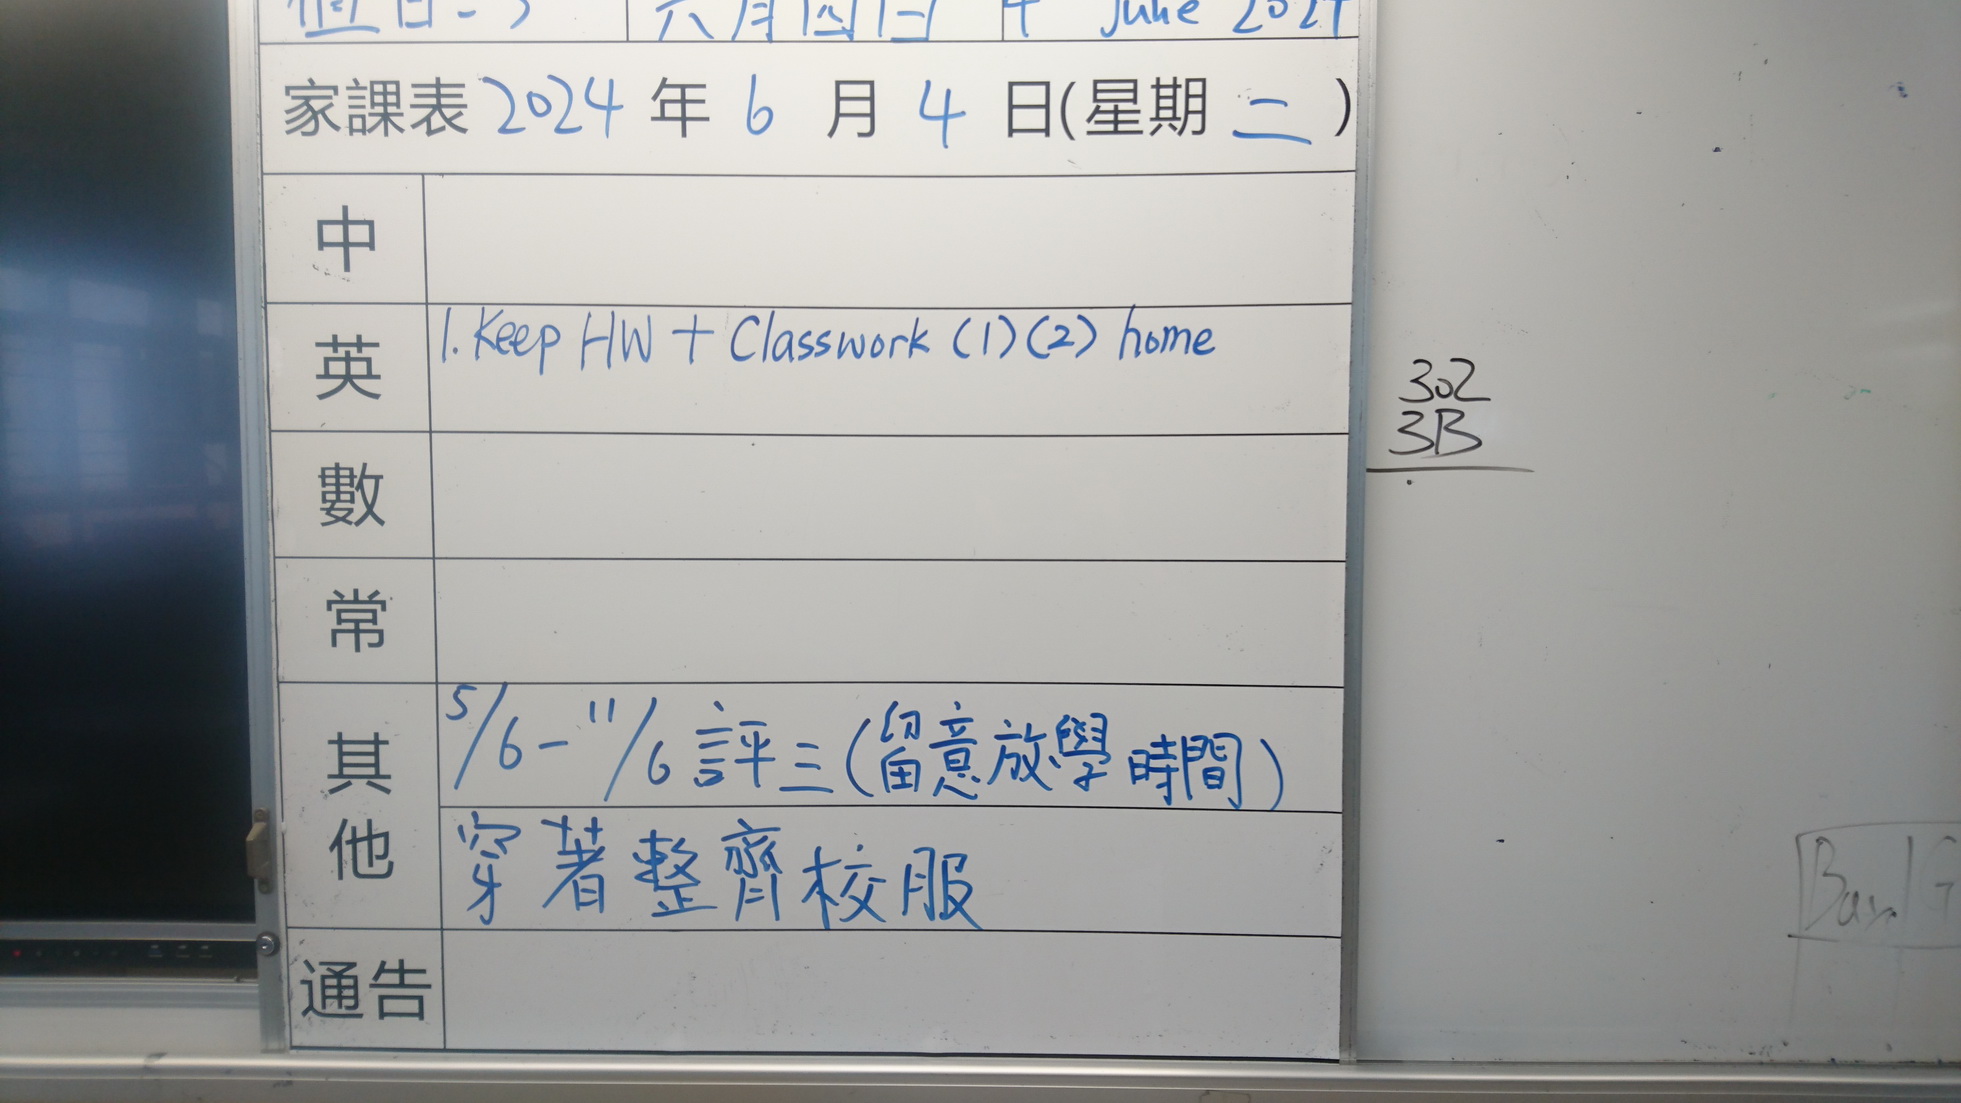 值日:
六月四日
4 June 2024
家課表 2024 年 6 月 4 日(星期 二 )
中
英 1. Keep HW + Classwork (1)(2) home
數
常
其他 5/6 - 11/6 評三 (留意放學時間)
穿著整齊校服
通告
302
3B